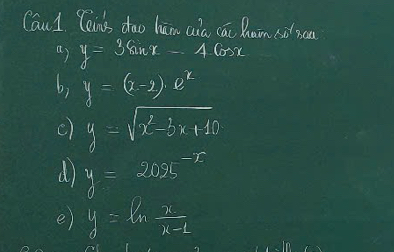 Câu 1. Tính đạo hàm của các hàm số sau
a, y = 3sinx - 4 Cosx
b, y = (x-2). e^x
c) y = √(x²-3x+10)
d) y = 2025^-x
e) y = ln x/(x-1)